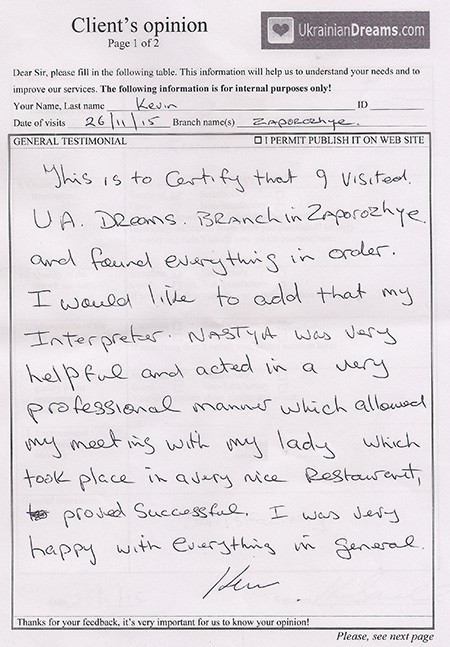 Client's opinion
Page 1 of 2
UkrainianDreams.com
Dear Sir, please fill in the following table. This information will help us to understand your needs and to
improve our services. The following information is for internal purposes only!
Your Name, Last name Kevin ID
Date of visits 26/11/15 Branch name(s) ZAPOROZHYE.
GENERAL TESTIMONIAL ☐ I PERMIT PUBLISH IT ON WEB SITE
This is to Certify that I visited.
U A. DREAMS. BRANCH in ZAPOROZHYE.
and found everything in order.
I would like to add that my
Interpreter. NASTYA was very
helpful and acted in a very
professional manner which allowed
my meeting with my lady which
took place in a very nice Restaurant,
proved Successful. I was very
happy with everything in general.
Kev
Thanks for your feedback, it's very important for us to know your opinion!
Please, see next page